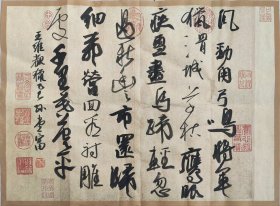 風勁角弓鳴將軍
獵渭城草枯鷹眼
疾雪盡馬蹄輕忽
過新豐市還歸
細柳營回看射雕
處千里暮雲平
王維觀獵